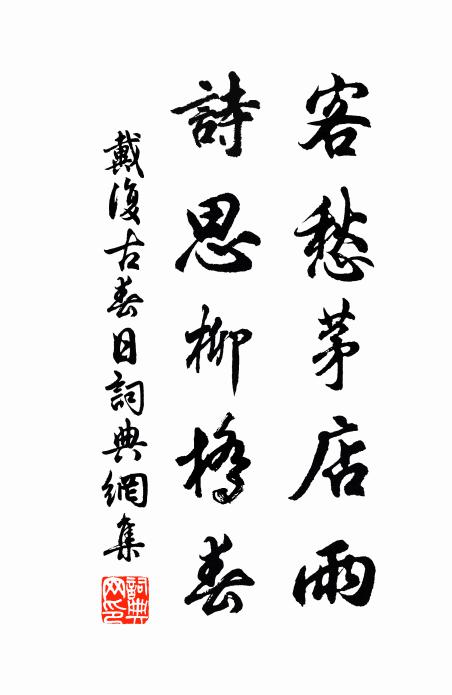 客愁茅店雨
詩思柳橋春
戴復古春日詞典網集
詞典網印